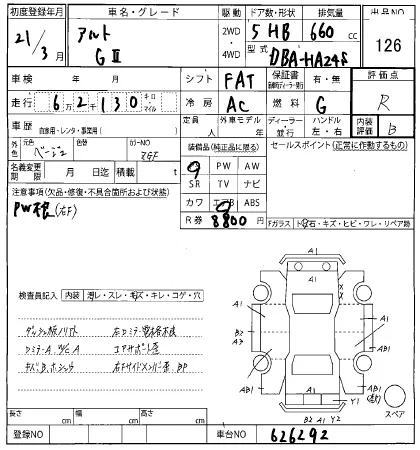 初度登録年月 車名・グレード 駆動 ドア数・形状 排気量 出品NO
21/3月 アルト GⅡ 2WD・4WD 5 HB 660 cc 126
型式 DBA-HA24S
車検 年 月 シフト FAT 保証書 有・無 評価点
走行 6 2 1 3 0 キロ・マイル 冷房 AC 燃料 G R
車歴 自家用・レンタ・事業用( ) 定員 人 外車モデル ディーラー・並行 ハンドル 左・右 内装評価 B
外色 元色 ベージュ 色替 カラーNO ZGF 装備品(純正品に限る) セールスポイント(正常に作動するもの)
名義変更期限 月 日迄 積載 t PW AW
注意事項(欠品・修復・不具合箇所および状態) SR TV ナビ
PW不良(右F) カワ エアB ABS
R券 8800 円 Fガラス トビ石・キズ・ヒビ・ワレ・リペア跡
検査員記入 内装 汚レ・スレ・キズ・キレ・コゲ・穴
A1
A1
A1 A1
B2 A3 A1
AB1 AB1
Y1
B2 A1 Y2
スペア
長さ cm 幅 cm 高さ cm
登録NO 車台NO 626292